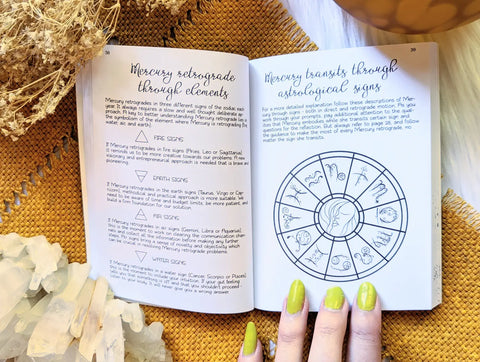 38
Mercury retrograde
through elements
Mercury retrogrades in three different signs of the zodiac each
year. It always requires a slow and well thought deliberate ap-
proach. A key to better understanding Mercury retrogrades is
the symbolism of the element where Mercury is retrograding (fire,
water, air, and earth).
FIRE SIGNS
If Mercury retrogrades in fire signs (Aries, Leo or Sagittarius),
it reminds us to be more creative towards our problems. A more
visionary and entrepreneurial approach is needed that is brave and
EARTH SIGNS
If Mercury retrogrades in the earth signs (Taurus, Virgo or Cap-
ricorn), methodical and practical approach is more suitable. We
need to be aware of time and budget limits, be more patient, and
build a firm foundation for our solution.
AIR SIGNS
If Mercury retrogrades in air signs (Gemini, Libra or Aquarius),
this is the moment to work on clearing the communication chan-
nels and collect all the information before making any further
steps. Air signs bring a sense of novelty and objectivity which
can be crucial in resolving Mercury retrograde problems.
WATER SIGNS
If Mercury retrogrades in a water sign (Cancer, Scorpio or Pisces),
this is the moment to include your intuition. If your gut feeling
tells you that something is off and that you shouldn't proceed,
listen to your body. It will never give you a wrong answer.
39
Mercury transits through
astrological signs
For a more detailed explanation follow these descriptions of Mer-
cury through signs - both in direct and retrograde motion. As you
work through your prompts, pay additional attention to the quali-
ties that Mercury embodies while she transits certain sign and
questions for the reflection. But always refer to page 28, and follow
the guidance to make the most of every Mercury retrograde, no
matter the sign she transits.